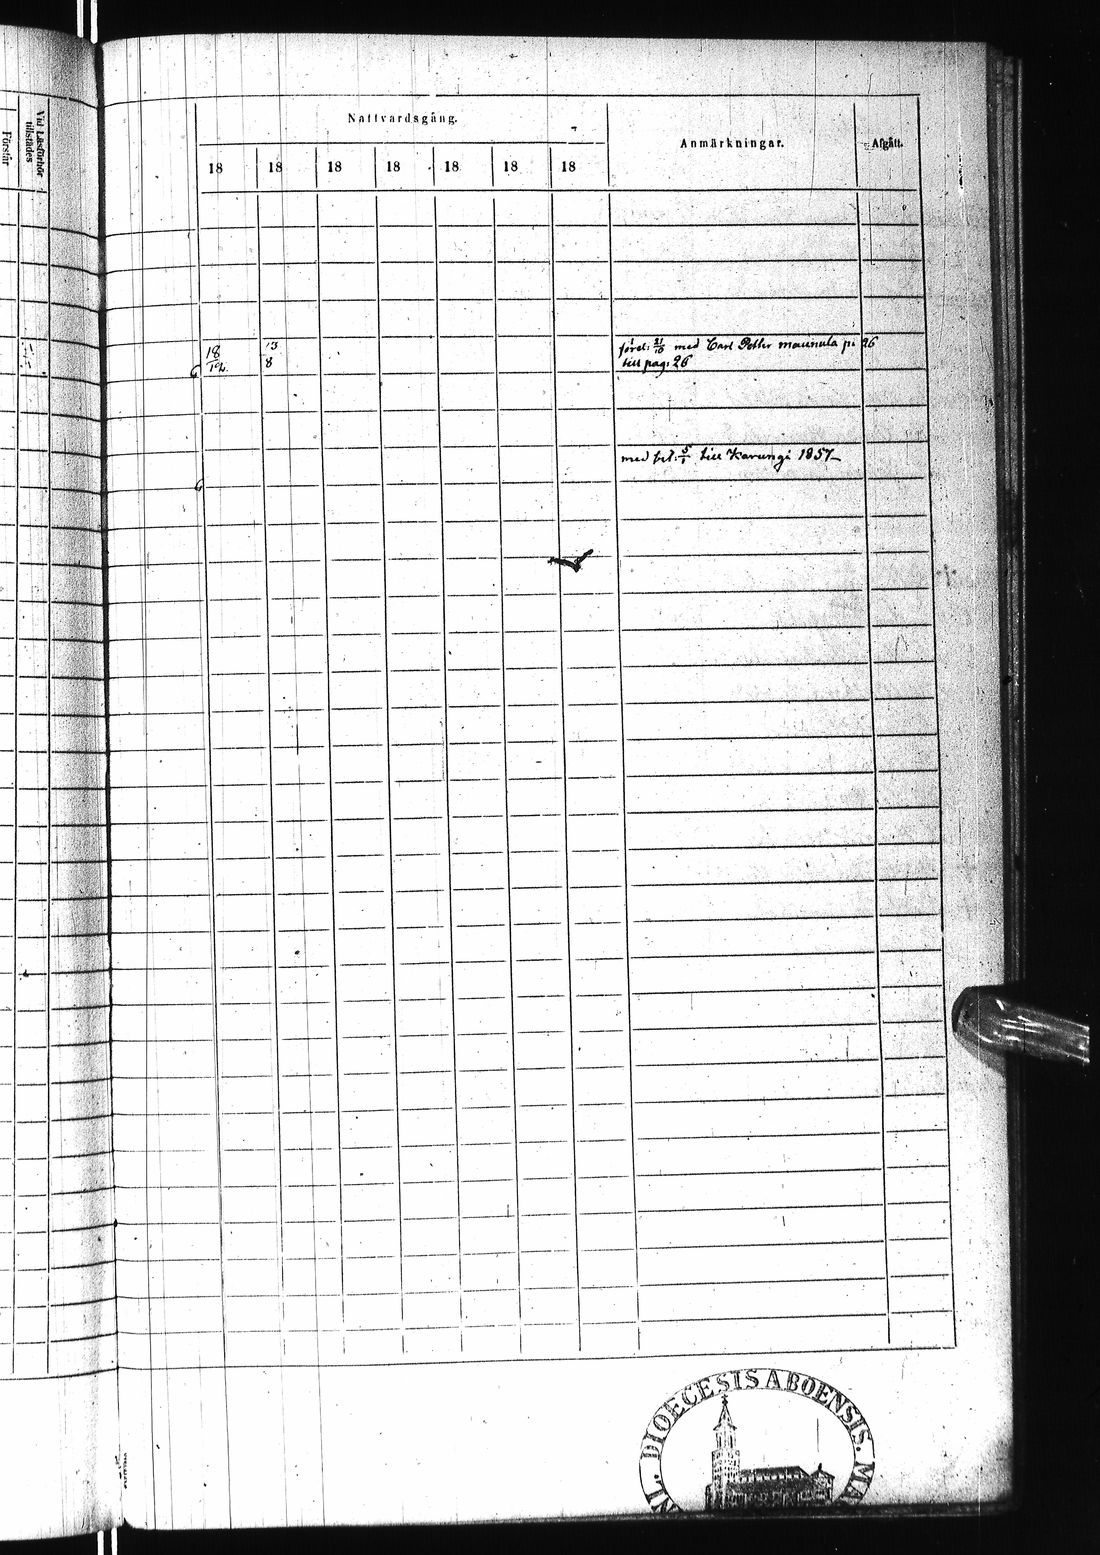 Vid Läsförhör
tillstädes
Förstår
Nattvardsgång.
Anmärkningar.
Afgått.
18 18 18 18 18 18 18
18/12 13/8
med Carl Petter maunula på 26
till pag: 26
6
med bet: 5/1 till Karungi 1857
6
DIOECESIS ABOENSIS.